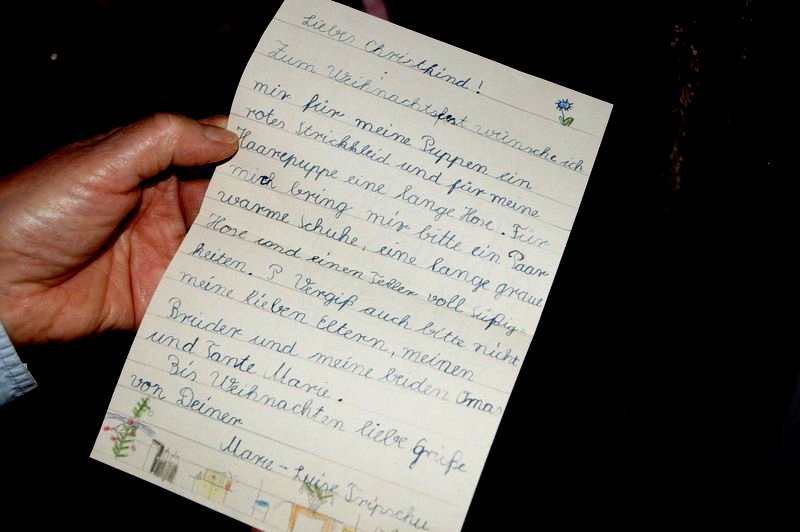 Liebes Christkind!
Zum Weihnachtsfest wünsche ich
mir für meine Puppen ein
rotes Strickkleid und für meine
Haarepuppe eine lange Hose. Für
mich bring mir bitte ein Paar
warme Schuhe, eine lange graue
Hose und einen Teller voll Süßig-
keiten. P Vergiß auch bitte nicht
meine lieben Eltern, meinen
Bruder und meine beiden Omas
und Tante Marie.
Bis Weihnachten liebe Grüße
von Deiner
Marie-Luise Tripschu